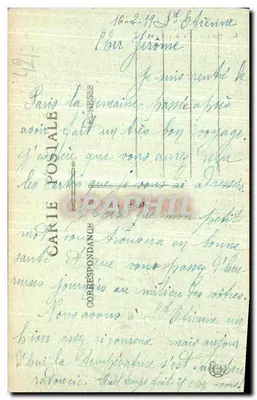 16-2-19 St Etienne
Cher Jérôme
Je suis rentré de
Paris la semaine passée après
avoir fait un très bon voyage.
J'espère que vous aurez reçu
les cartes que je vous ai adressées
que mon petit
mot vous trouvera en bonne
santé et que vous passez d'heu-
reuses journées au milieu des vôtres.
Nous avons à St Etienne un
hiver assez rigoureux mais aujour
d'hui la température s'est
radoucie. Quel temps fait il chez vous
CARTE POSTALE
CORRESPONDANCE
ADRESSE